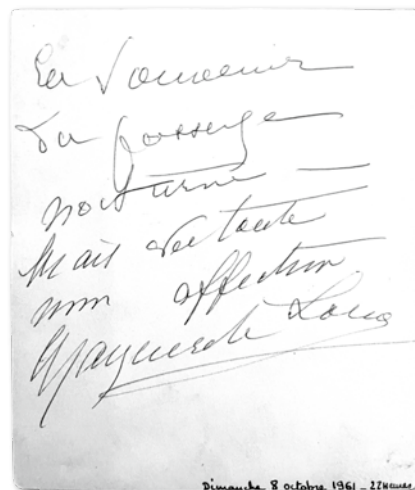 En Souvenir
du passage
nocturne —
Mais de toute
mon affection
Marguerite Long
Dimanche 8 octobre 1961 - 22 Heures